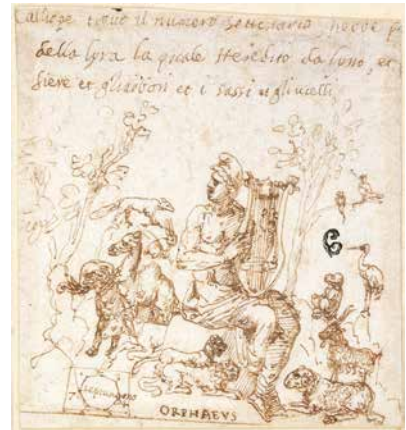 Calliope trouo il numero settenario
della lyra la quale Heredito da lyno, et
fiere et gli arbori et i sassi et gli ucelli
ORPHAEVS